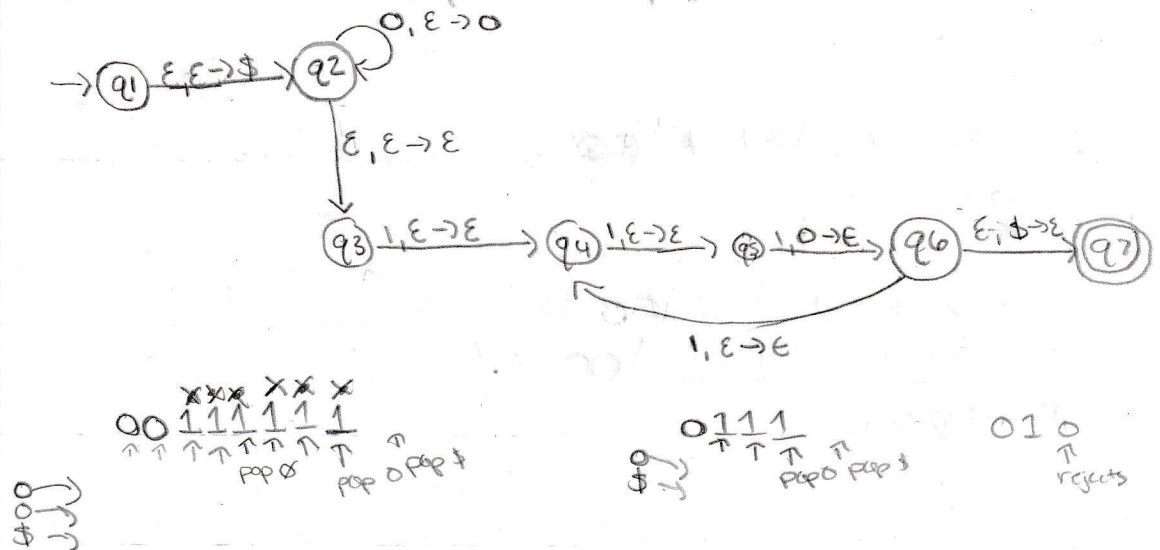 0, ε → 0
q1 ε, ε → $ q2
ε, ε → ε
q3 1, ε → ε q4 1, ε → ε q5 1, 0 → ε q6 ε, $ → ε q7
1, ε → ε
x x x x x x
0 0 1 1 1 1 1 1
pop 0 pop 0 pop $
0
0
$
0 1 1 1
pop 0 pop $
0
$
0 1 0
rejects